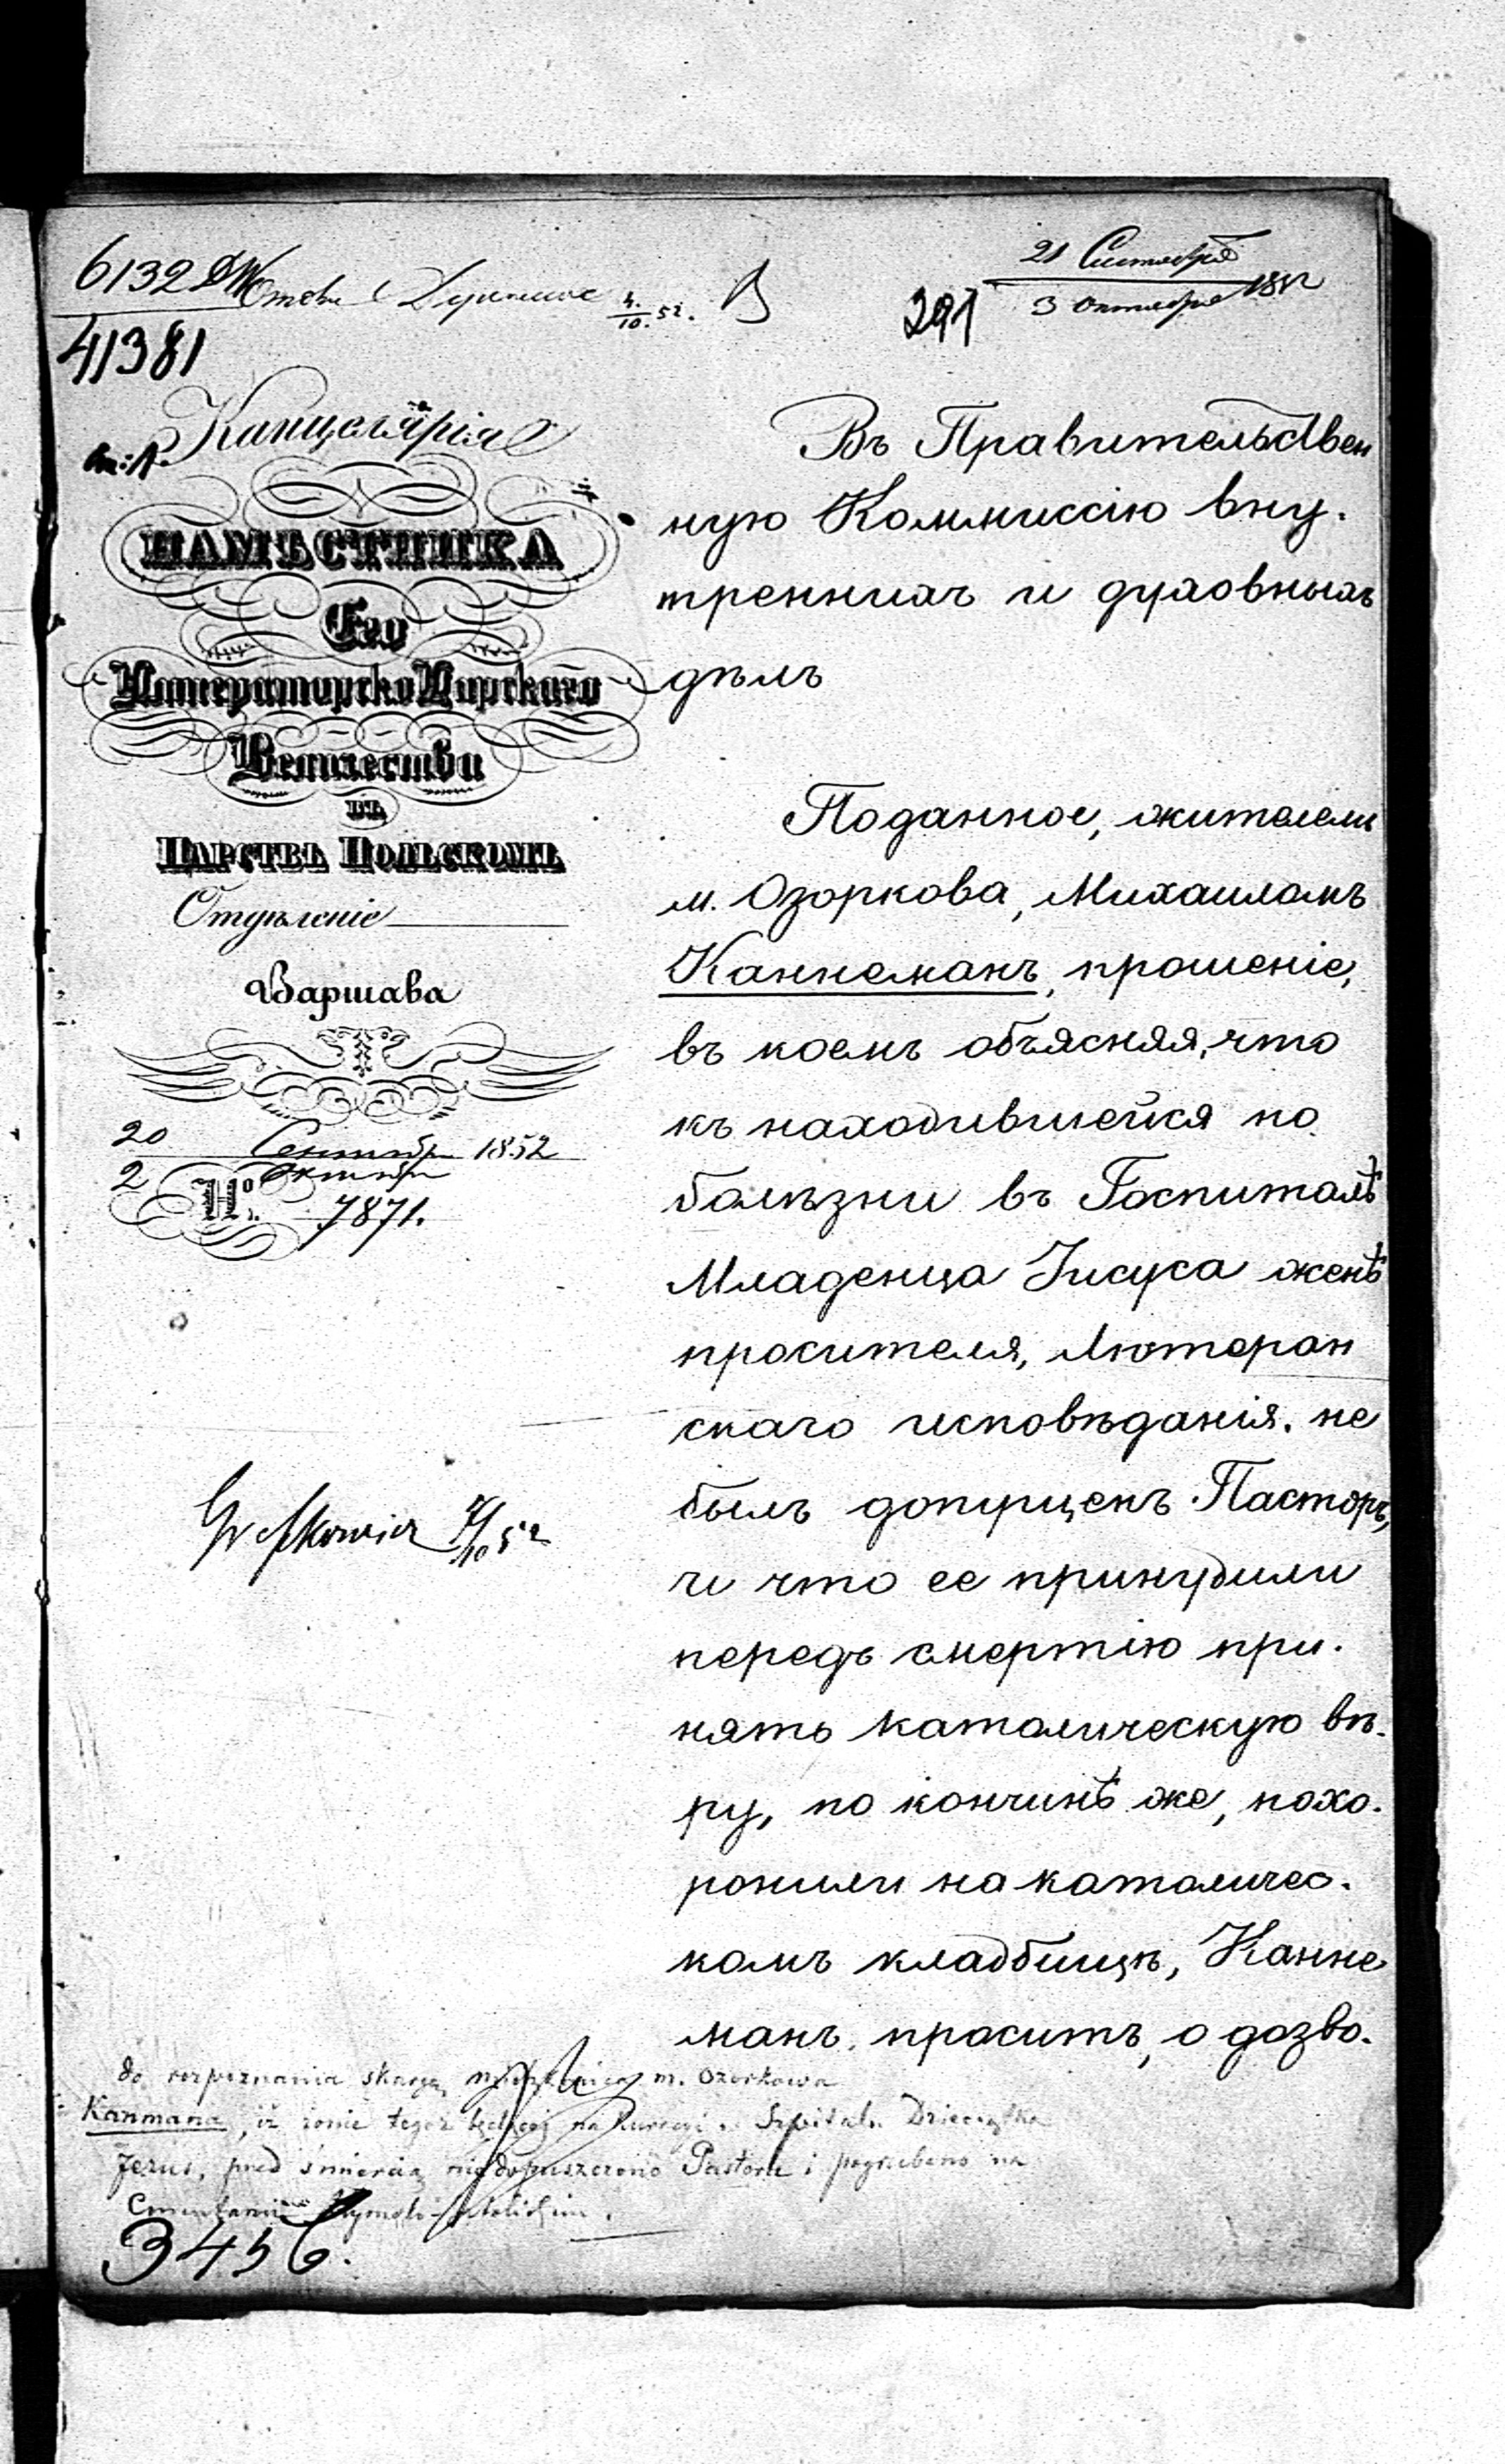 6132
41381
4./10. 52.
21 Сентября
3 Октября 1852
291
Канцелярія
НАМѢСТНИКА
Его
Императорско Царскаго
Величества
въ
ЦАРСТВѢ ПОЛЬСКОМЪ
Отдѣленіе
Варшава
20 Сентября 1852
2 Октября
№. 7871.
Въ Правительствен
ную Коммиссію вну-
треннихъ и духовныхъ
дѣлъ
Поданное, жителемъ
м. Озоркова, Михаиломъ
Каннеманъ, прошеніе,
въ коемъ объясняя, что
къ находившейся по
болѣзни въ Госпиталѣ
Младенца Іисуса женѣ
просителя, Лютеран
скаго исповѣданія, не
былъ допущенъ Пасторъ,
и что ее принудили
передъ смертію при-
нять католическую вѣ-
ру, по кончинѣ же, похо-
ронили на католичес-
комъ кладбищѣ, Канне
манъ, проситъ, о дозво-
4/10 52
do rozpoznania skargę m. Ozorkowa
Kanmana, iż żonie tegoż będącej na kuracyi w Szpitalu Dzieciątka
Jezus, przed śmiercią niedopuszczono Pastora i pogrzebano na
Cmentarzu Rzymsko-Katolickim.
3456.